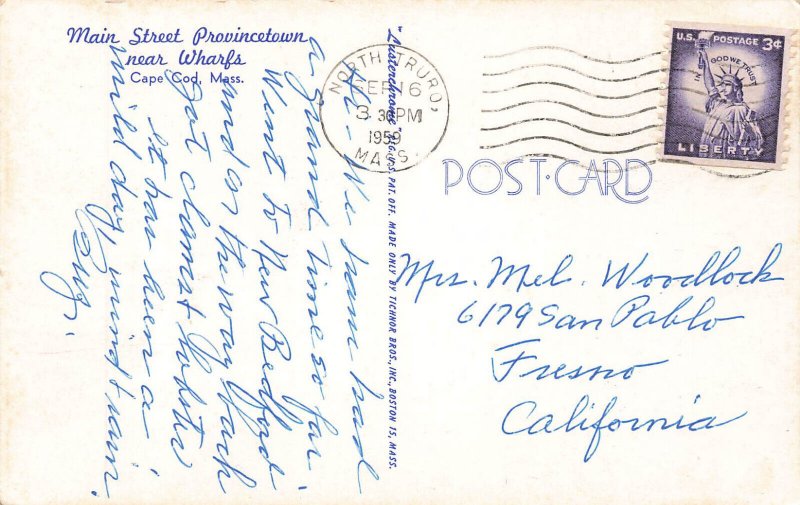 Main Street Provincetown
near Wharfs
Cape Cod, Mass.
Hi - We have had
a grand time so far.
Went to New Bedford
and on the way back
got clams & lobster
It has been a
mild day, wind & rain.
"Lusterchrome" REG. U.S. PAT. OFF. MADE ONLY BY TICHNOR BROS., INC., BOSTON 15, MASS.
NORTH TRURO,
SEP 16
3 30 PM
1959
MASS.
U.S. POSTAGE 3¢
IN GOD WE TRUST
LIBERTY
POST-CARD
Mrs. Mel. Woodlock
6179 San Pablo
Fresno
California